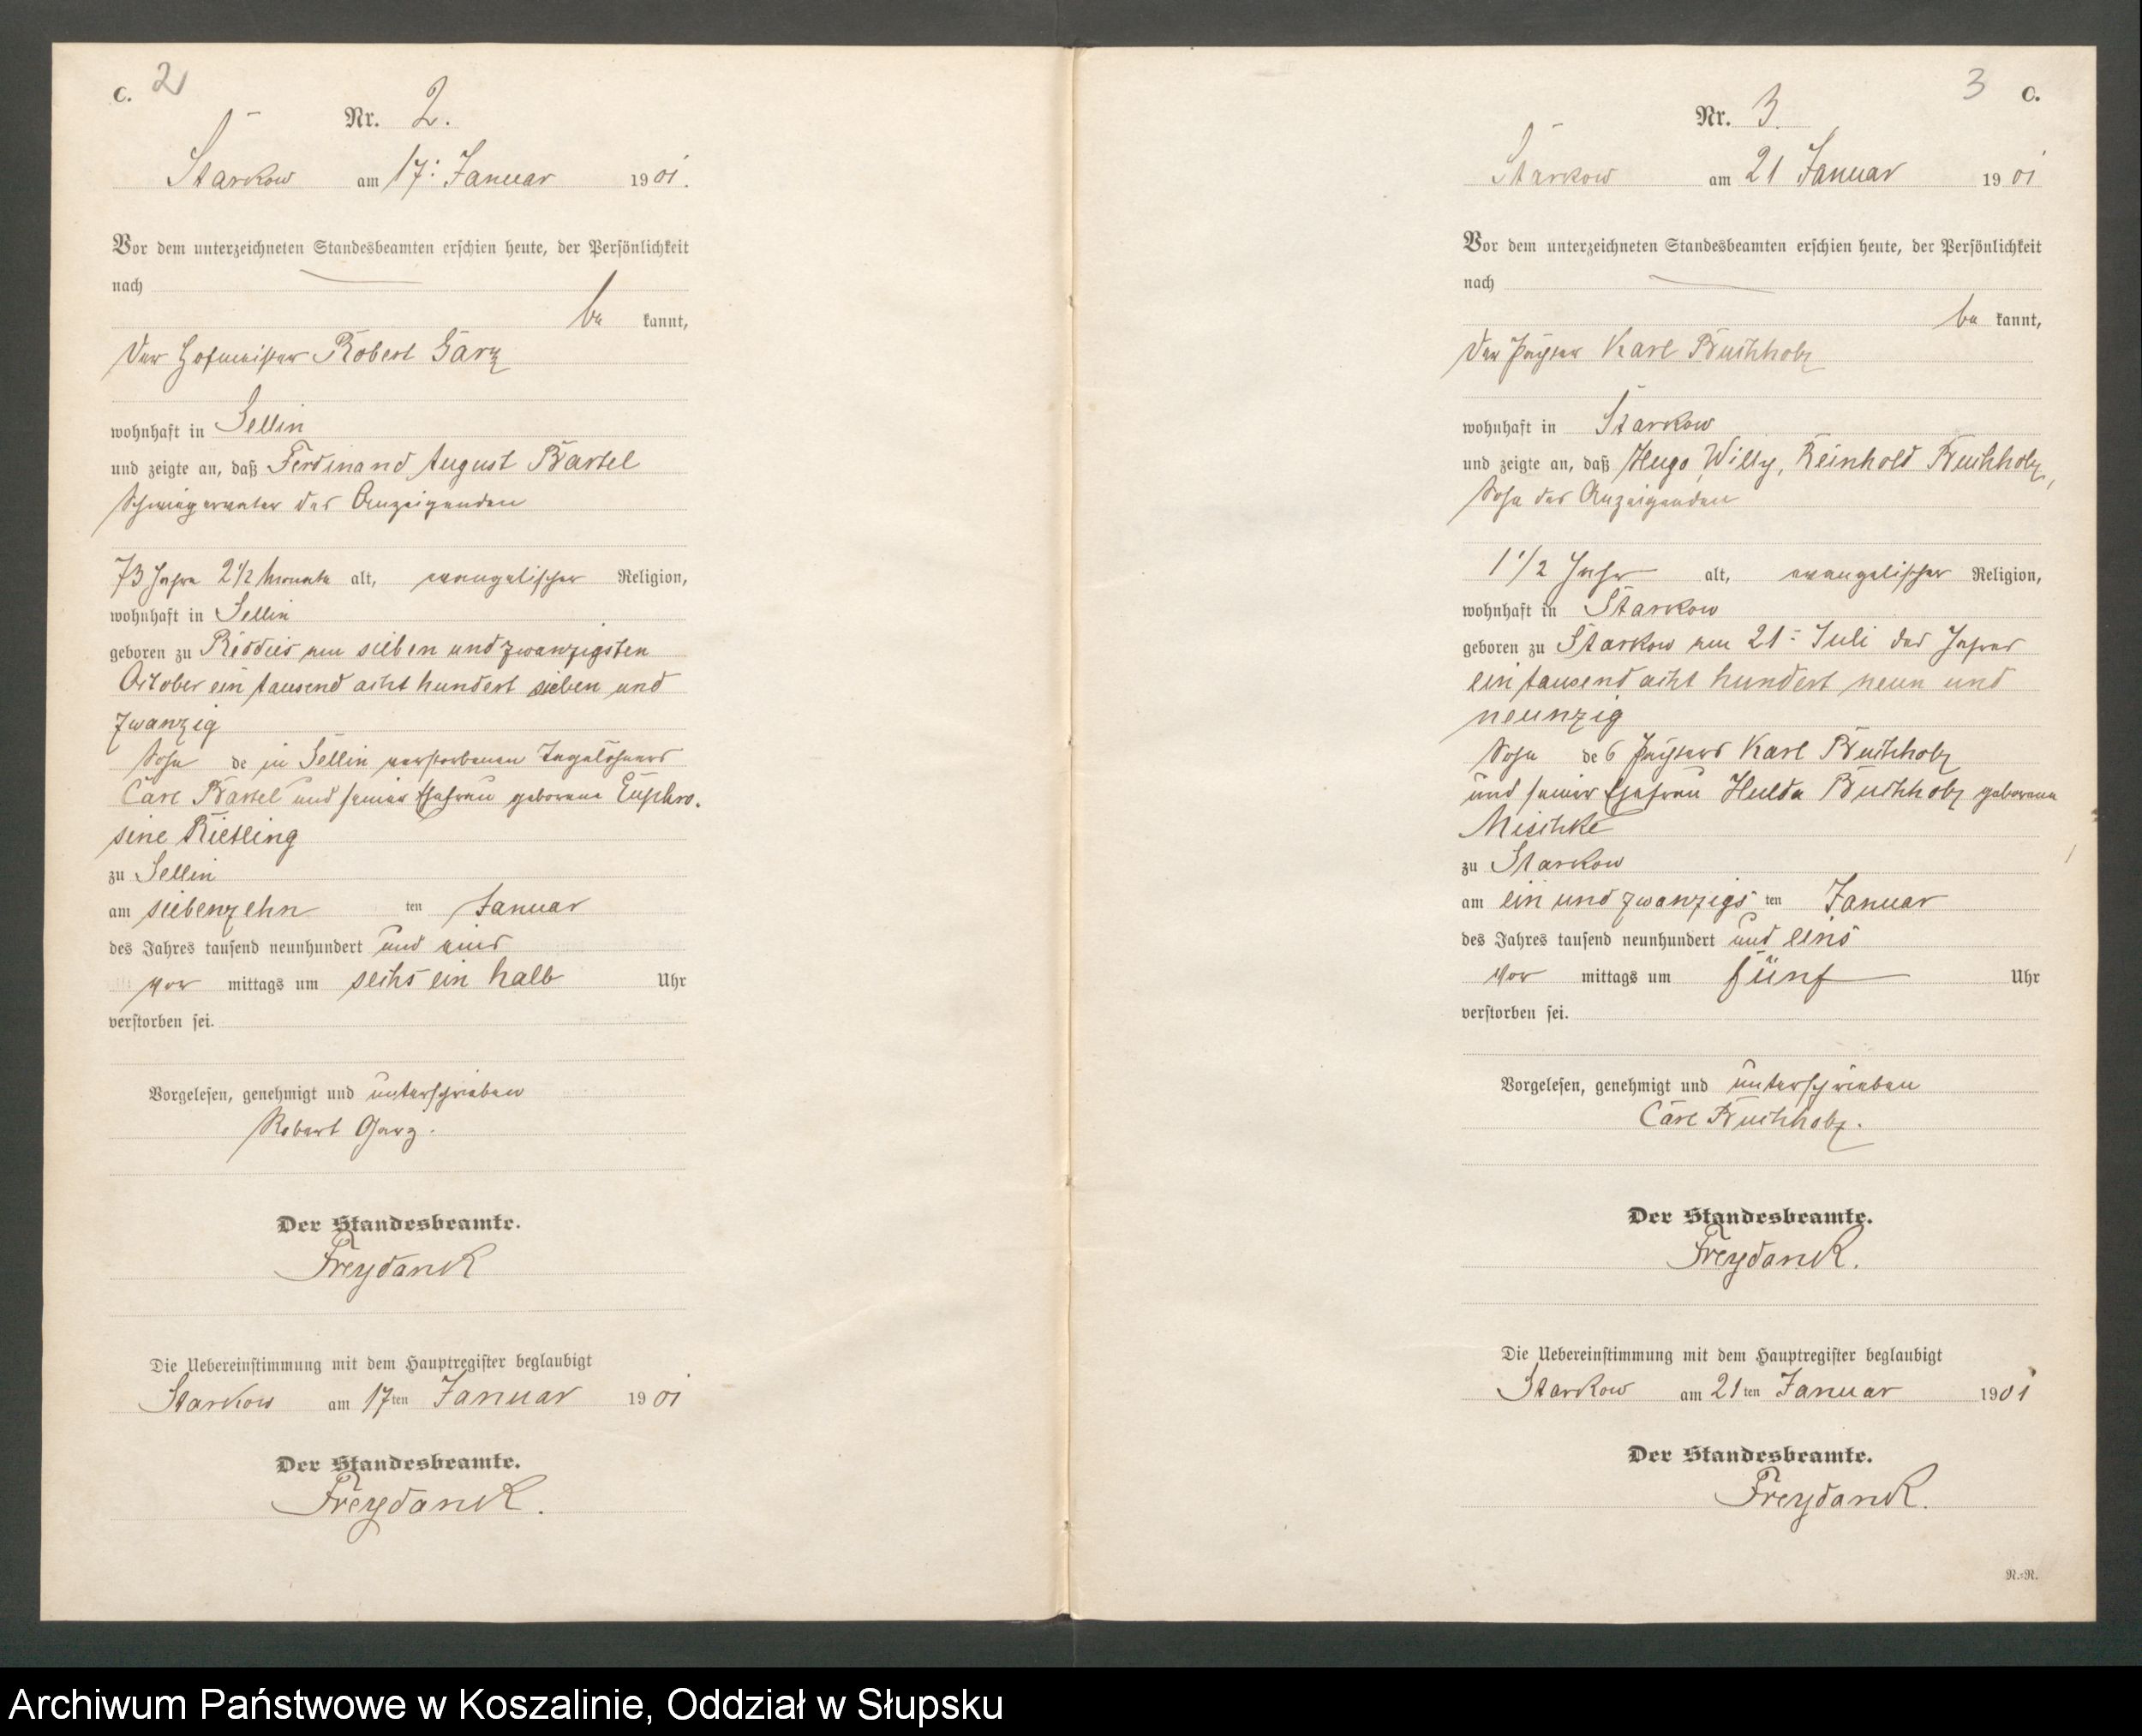 C. 2
Nr. 2.
Starkow am 17. Januar 1901.
Vor dem unterzeichneten Standesbeamten erschien heute, der Persönlichkeit
nach
be kannt,
der Hofmeister Robert Garz
wohnhaft in Sellin
und zeigte an, daß Ferdinand August Bartel
Schwiegervater des Anzeigenden
73 Jahre 2 1/2 Monate alt, evangelischer Religion,
wohnhaft in Sellin
geboren zu Reddies am sieben und zwanzigsten
October ein tausend acht hundert sieben und
zwanzig
Sohn de in Sellin verstorbenen Tagelöhners
Carl Bartel und seiner Ehefrau geborene Euphro-
sine Rietling
zu Sellin
am siebenzehn ten Januar
des Jahres tausend neunhundert und eins
vor mittags um sechs ein halb Uhr
verstorben sei.
Vorgelesen, genehmigt und unterschrieben
Robert Garz.
Der Standesbeamte.
Freydank
Die Uebereinstimmung mit dem Hauptregister beglaubigt
Starkow am 17ten Januar 1901
Der Standesbeamte.
Freydank.
3 C.
Nr. 3.
Starkow am 21 Januar 1901
Vor dem unterzeichneten Standesbeamten erschien heute, der Persönlichkeit
nach
be kannt,
der Karl Buchholz
wohnhaft in Starkow
und zeigte an, daß Hugo, Willy, Reinhold Buchholz,
Sohn des Anzeigenden
1 1/2 Jahr alt, evangelischer Religion,
wohnhaft in Starkow
geboren zu Starkow am 21. Juli des Jahres
ein tausend acht hundert neun und
neunzig
Sohn des Karl Buchholz
und seiner Ehefrau Hulda Buchholz geborene
Mischke
zu Starkow
am ein und zwanzigs ten Januar
des Jahres tausend neunhundert und eins
vor mittags um fünf Uhr
verstorben sei.
Vorgelesen, genehmigt und unterschrieben
Carl Buchholz.
Der Standesbeamte.
Freydank.
Die Uebereinstimmung mit dem Hauptregister beglaubigt
Starkow am 21ten Januar 1901
Der Standesbeamte.
Freydank.
R.=R.
Archiwum Państwowe w Koszalinie, Oddział w Słupsku